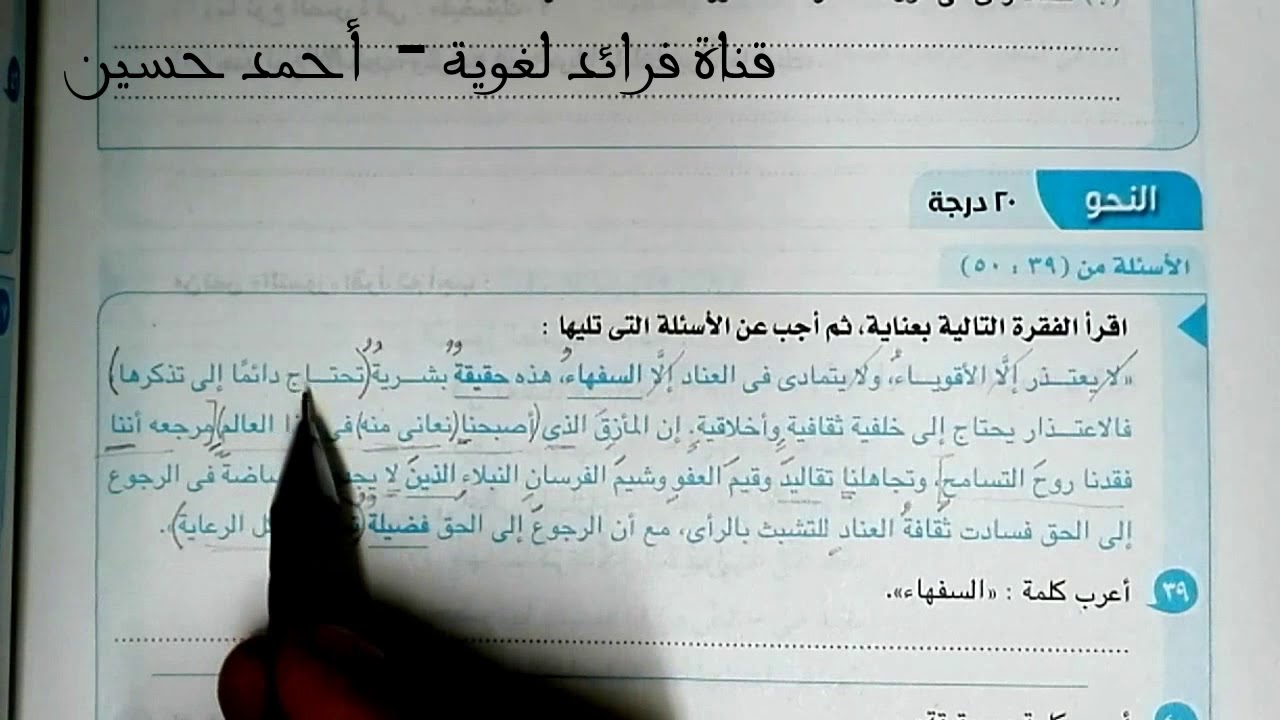 قناة فرائد لغوية - أحمد حسين
النحو
٢٠ درجة
الأسئلة من (٣٩ : ٥٠)
اقرأ الفقرة التالية بعناية، ثم أجب عن الأسئلة التى تليها :
«لا يعتذر إلَّا الأقوياء، ولا يتمادى فى العناد إلَّا السفهاء، هذه حقيقة بشرية (تحتاج دائمًا إلى تذكرها)
فالاعتذار يحتاج إلى خلفية ثقافية وأخلاقية. إن المأزقَ الذي (أصبحنا (نعانى منه) فى العالم) [مرجعه أننا
فقدنا روحَ التسامح]، وتجاهلنا تقاليدَ وقيمَ العفوِ وشيمَ الفرسانِ النبلاءِ الذينَ لا فى الرجوع
إلى الحق فسادت ثقافةُ العنادِ للتشبث بالرأى، مع أن الرجوعَ إلى الحق فضيلة الرعاية).
٣٩ أعرب كلمة : «السفهاء».